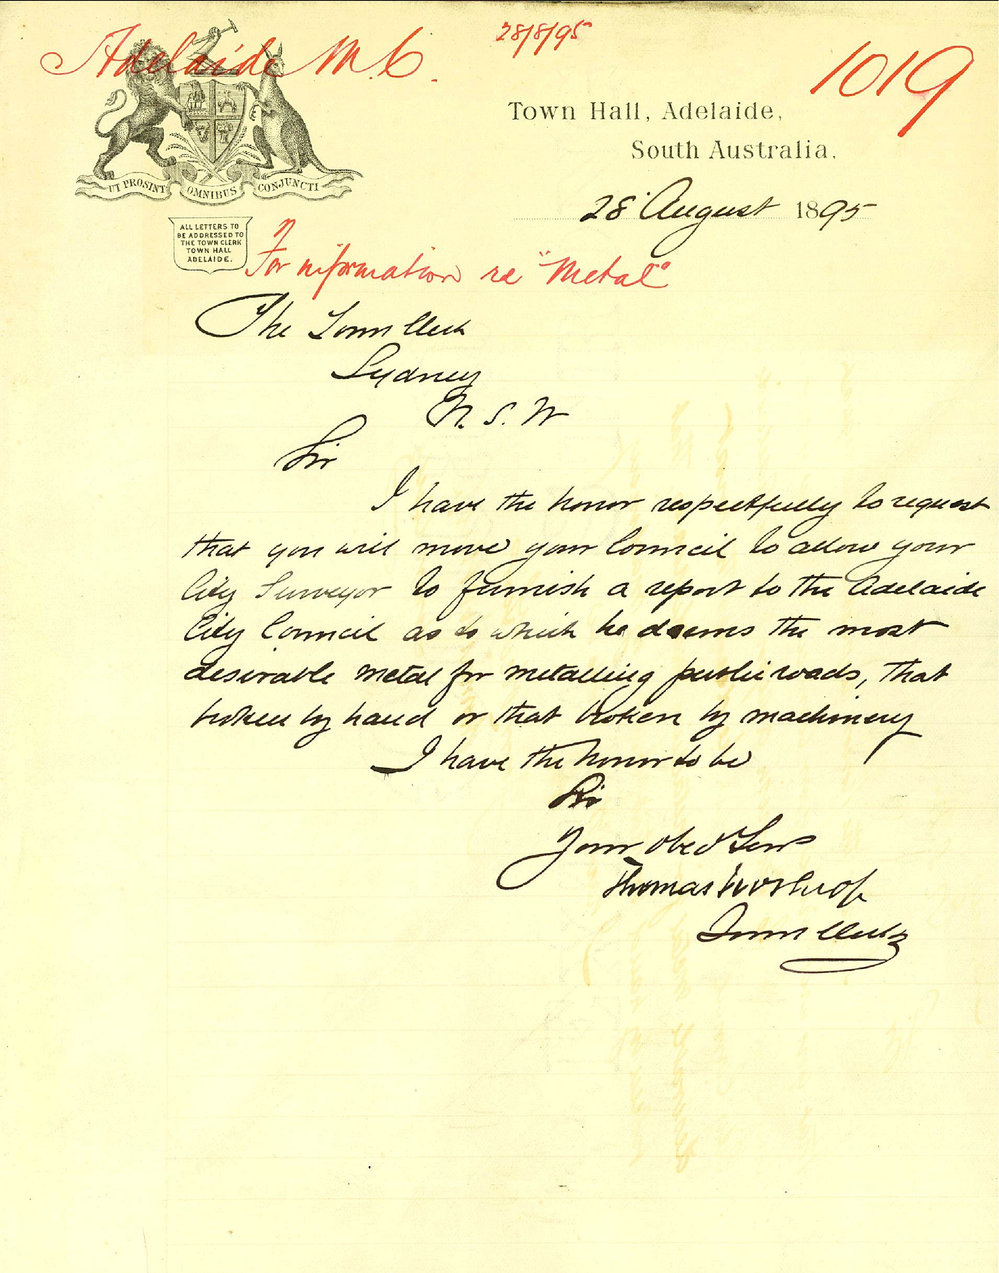 Adelaide M.C.
28/8/95
1019
Town Hall, Adelaide,
South Australia.
UT PROSINT OMNIBUS CONJUNCTI
28 August 1895
ALL LETTERS TO
BE ADDRESSED TO
THE TOWN CLERK
TOWN HALL
ADELAIDE.
For information re "Metal"
The Town Clerk
Sydney
N. S. W
Sir
I have the honor respectfully to request
that you will move your Council to allow your
City Surveyor to furnish a report to the Adelaide
City Council as to which he deems the most
desirable metal for metalling public roads, that
broken by hand or that broken by machinery
I have the honor to be
Sir
Your obed Serv
Thomas Worsnop
Town Clerk